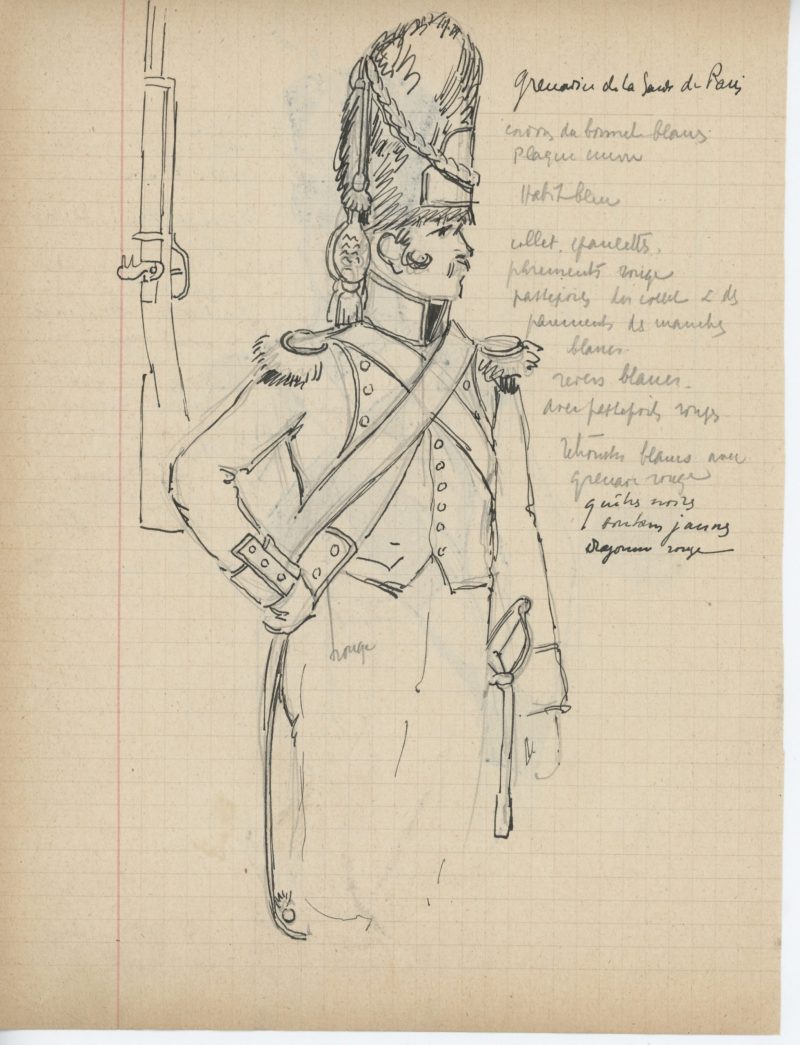 Grenadier de la Garde de Paris
cordons du bonnet blancs
plaque cuivre
Habit bleu
collet, épaulettes,
parements rouge
passepoils du collet & des
parements des manches
blancs.
revers blancs.
avec passepoils rouges
retroussis blancs avec
grenade rouge
guêtres noires
boutons jaunes
dragonne rouge
rouge